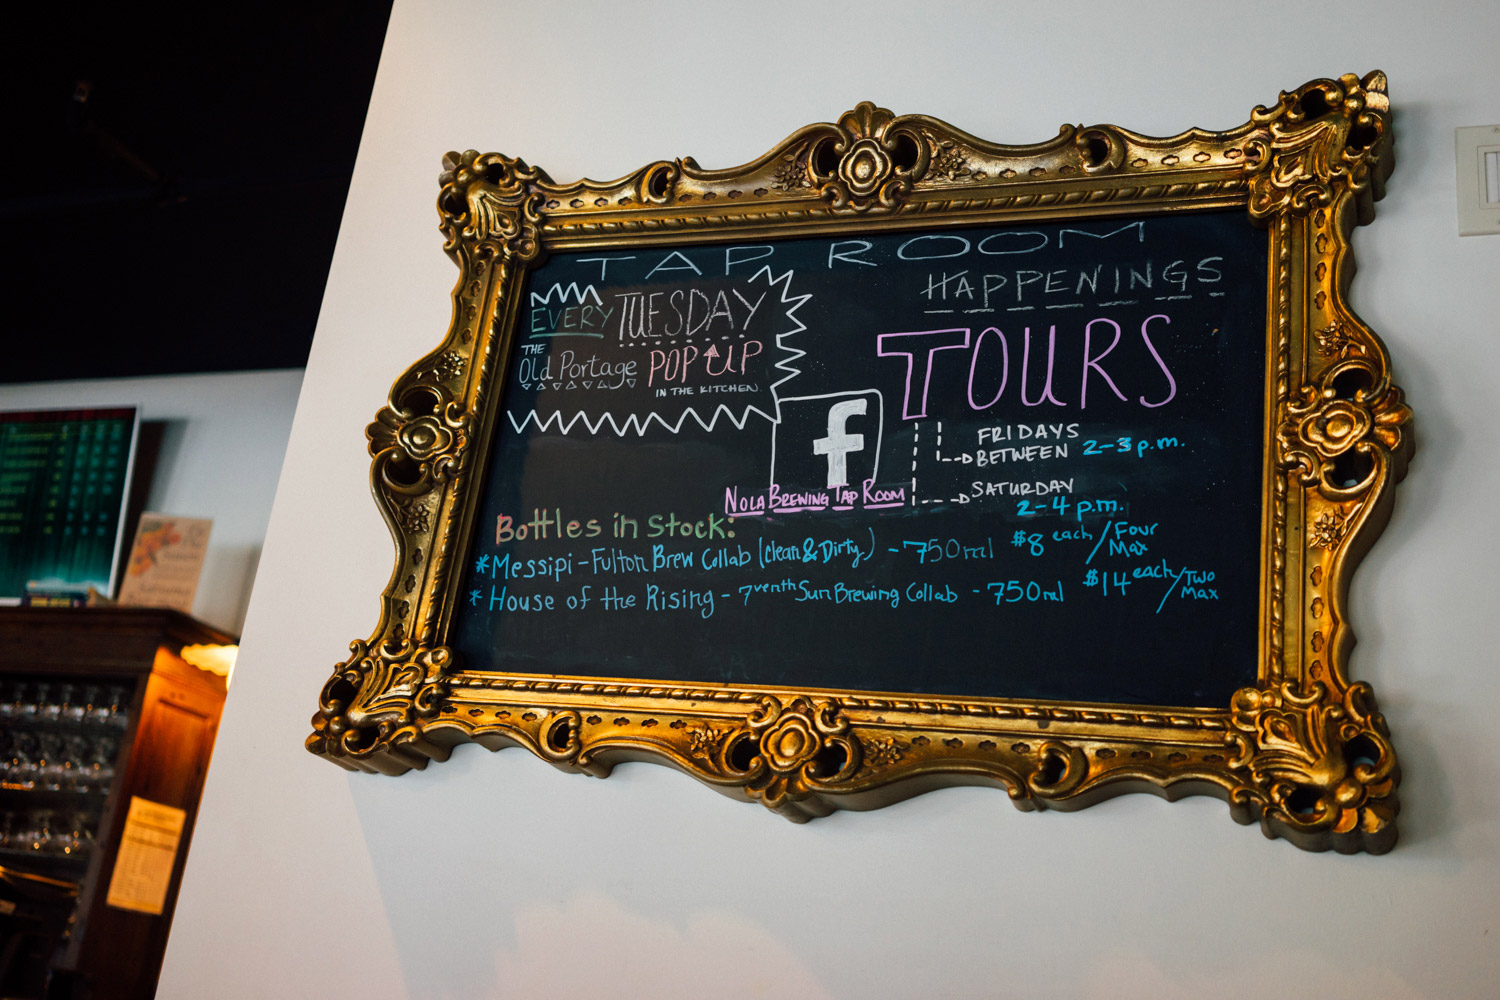 TAP ROOM
HAPPENINGS
EVERY TUESDAY
THE
Old Portage POP UP
IN THE KITCHEN.
f
NOLA BREWING TAP ROOM
TOURS
FRIDAYS
BETWEEN 2-3 p.m.
SATURDAY
2-4 p.m.
Bottles in Stock:
*Messipi - Fulton Brew Collab (Clean & Dirty) - 750ml $8 each / Four Max
* House of the Rising - 7venth Sun Brewing Collab - 750ml $14 each / Two Max